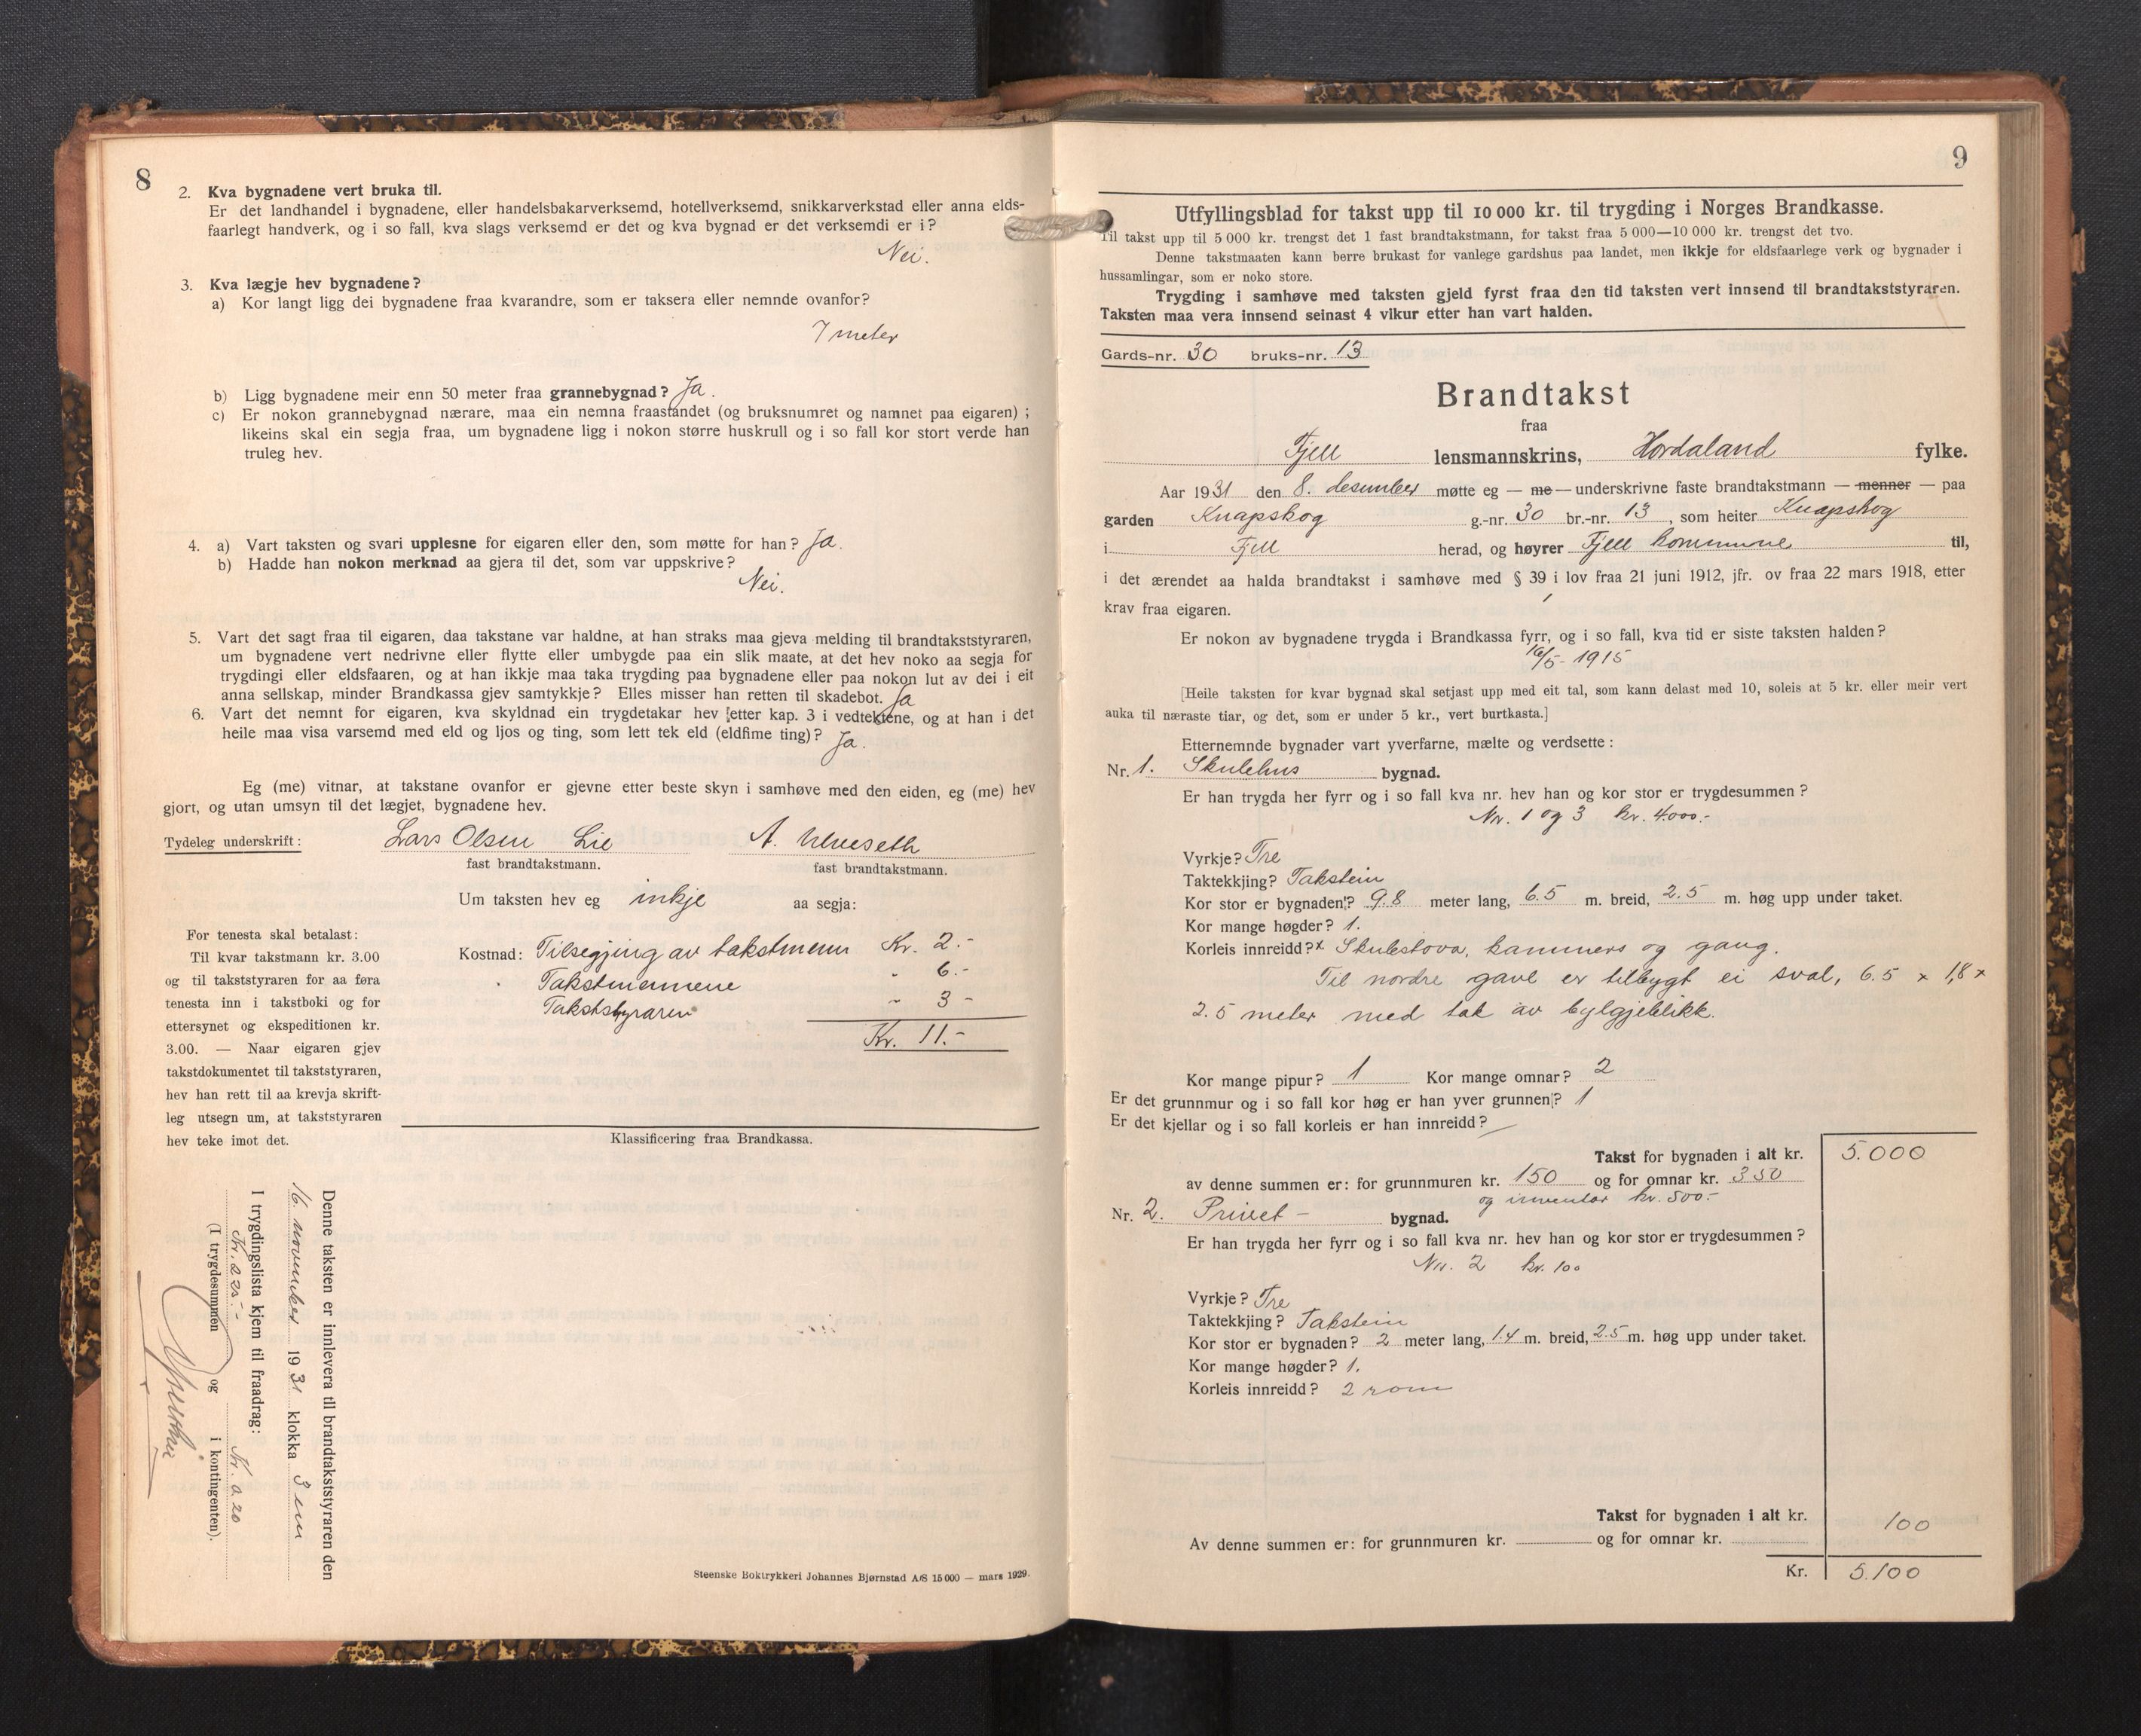 8
2. Kva bygnadene vert bruka til.
Er det landhandel i bygnadene, eller handelsbakarverksemd, hotellverksemd, snikkarverkstad eller anna elds-
faarlegt handverk, og i so fall, kva slags verksemd er det og kva bygnad er det verksemdi er i?
Nei.
3. Kva lægje hev bygnadene?
a) Kor langt ligg dei bygnadene fraa kvarandre, som er taksera eller nemnde ovanfor?
7 meter
b) Ligg bygnadene meir enn 50 meter fraa grannebygnad? Ja.
c) Er nokon grannebygnad nærare, maa ein nemna fraastandet (og bruksnumret og namnet paa eigaren) ;
likeins skal ein segja fraa, um bygnadene ligg i nokon større huskrull og i so fall kor stort verde han
truleg hev.
4. a) Vart taksten og svari upplesne for eigaren eller den, som møtte for han? Ja.
b) Hadde han nokon merknad aa gjera til det, som var uppskrive?
Nei.
5. Vart det sagt fraa til eigaren, daa takstane var haldne, at han straks maa gjeva melding til brandtakststyraren,
um bygnadene vert nedrivne eller flytte eller umbygde paa ein slik maate, at det hev noko aa segja for
trygdingi eller eldsfaaren, og at han ikkje maa taka trygding paa bygnadene eller paa nokon lut av dei i eit
anna sellskap, minder Brandkassa gjev samtykkje? Elles misser han retten til skadebot. Ja
6. Vart det nemnt for eigaren, kva skyldnad ein trygdetakar hev etter kap. 3 i vedtektene, og at han i det
heile maa visa varsemd med eld og ljos og ting, som lett tek eld (eldfime ting)? Ja.
Eg (me) vitnar, at takstane ovanfor er gjevne etter beste skyn i samhøve med den eiden, eg (me) hev
gjort, og utan umsyn til det lægjet, bygnadene hev.
Tydeleg underskrift: Lars Olsen Lie A. Ulveseth
fast brandtakstmann. fast brandtakstmann.
Um taksten hev eg inkje aa segja:
For tenesta skal betalast:
Til kvar takstmann kr. 3.00
og til takststyraren for aa føra
tenesta inn i takstboki og for
ettersynet og ekspeditionen kr.
3.00. — Naar eigaren gjev
takstdokumentet til takststyraren,
hev han rett til aa krevja skrift-
leg utsegn um, at takststyraren
hev teke imot det.
Kostnad: Tilsegjing av takstmenn Kr. 2.-
Takstmennene " 6.-
Takststyraren " 3 -
Kr. 11.-
Klassificering fraa Brandkassa.
Denne taksten er innlevera til brandtakststyraren den
16. november 1931 klokka 3 em
I trygdingslista kjem til fraadrag:
Kr. 025.- Kr. 0 20
(I trygdesummen og i kontingenten).
Steenske Boktrykkeri Johannes Bjørnstad A/S 15 000 — mars 1929.
9
Utfyllingsblad for takst upp til 10 000 kr. til trygding i Norges Brandkasse.
Til takst upp til 5 000 kr. trengst det 1 fast brandtakstmann, for takst fraa 5 000—10 000 kr. trengst det tvo.
Denne takstmaaten kann berre brukast for vanlege gardshus paa landet, men ikkje for eldsfaarlege verk og bygnader i
hussamlingar, som er noko store.
Trygding i samhøve med taksten gjeld fyrst fraa den tid taksten vert innsend til brandtakststyraren.
Taksten maa vera innsend seinast 4 vikur etter han vart halden.
Gards-nr. 30 bruks-nr. 13
Brandtakst
fraa
Fjell lensmannskrins, Hordaland fylke.
Aar 1931 den 8. desember møtte eg — me — underskrivne faste brandtakstmann — menner — paa
garden Knapskog g.-nr. 30 br.-nr. 13, som heiter Knapskog
i Fjell herad, og høyrer Fjell kommune til,
i det ærendet aa halda brandtakst i samhøve med § 39 i lov fraa 21 juni 1912, jfr. ov fraa 22 mars 1918, etter
krav fraa eigaren.
Er nokon av bygnadene trygda i Brandkassa fyrr, og i so fall, kva tid er siste taksten halden?
16/5- 1915
[Heile taksten for kvar bygnad skal setjast upp med eit tal, som kann delast med 10, soleis at 5 kr. eller meir vert
auka til næraste tiar, og det, som er under 5 kr., vert burtkasta.]
Etternemnde bygnader vart yverfarne, mælte og verdsette :
Nr. 1. Skulehus bygnad.
Er han trygda her fyrr og i so fall kva nr. hev han og kor stor er trygdesummen ?
Nr. 1 og 3 kr. 4000.-
Vyrkje? Tre
Taktekkjing? Takstein
Kor stor er bygnaden? 9.8 meter lang, 6.5 m. breid, 2.5 m. høg upp under taket.
Kor mange høgder? 1.
Korleis innreidd?x Skulestova, kammers og gang.
Til nordre gavl er tilbygt ei sval, 6.5 x 1,8 x
2.5 meter med tak av bylgjeblikk.
Kor mange pipur? 1 Kor mange omnar? 2
Er det grunnmur og i so fall kor høg er han yver grunnen? 1
Er det kjellar og i so fall korleis er han innreidd? —
Takst for bygnaden i alt kr. 5.000
av denne summen er: for grunnmuren kr. 150 og for omnar kr. 350
og inventar kr. 500.-
Nr. 2. Privet - bygnad.
Er han trygda her fyrr og i so fall kva nr. hev han og kor stor er trygdesummen ?
Nr. 2 kr. 100
Vyrkje ? Tre
Taktekkjing ? Takstein
Kor stor er bygnaden? 2 meter lang, 1.4 m. breid, 2.5 m. høg upp under taket.
Kor mange høgder? 1.
Korleis innreidd ? 2 rom
Takst for bygnaden i alt kr. 100
Av denne summen er: for grunnmuren kr. og for omnar kr.
Kr. 5.100